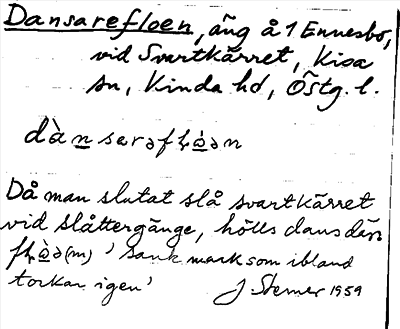 Dansarefloen, äng å 1 Ennesbo,
vid Svartkärret, Kisa
sn, Kinda hd, Östg. l.
dànsarəfɫòən
Då man slutat slå svartkärret
vid slåttergänge, hölls dans där
fɫòə(m) 'sank mark som ibland
torkar igen' J. Stemer 1959